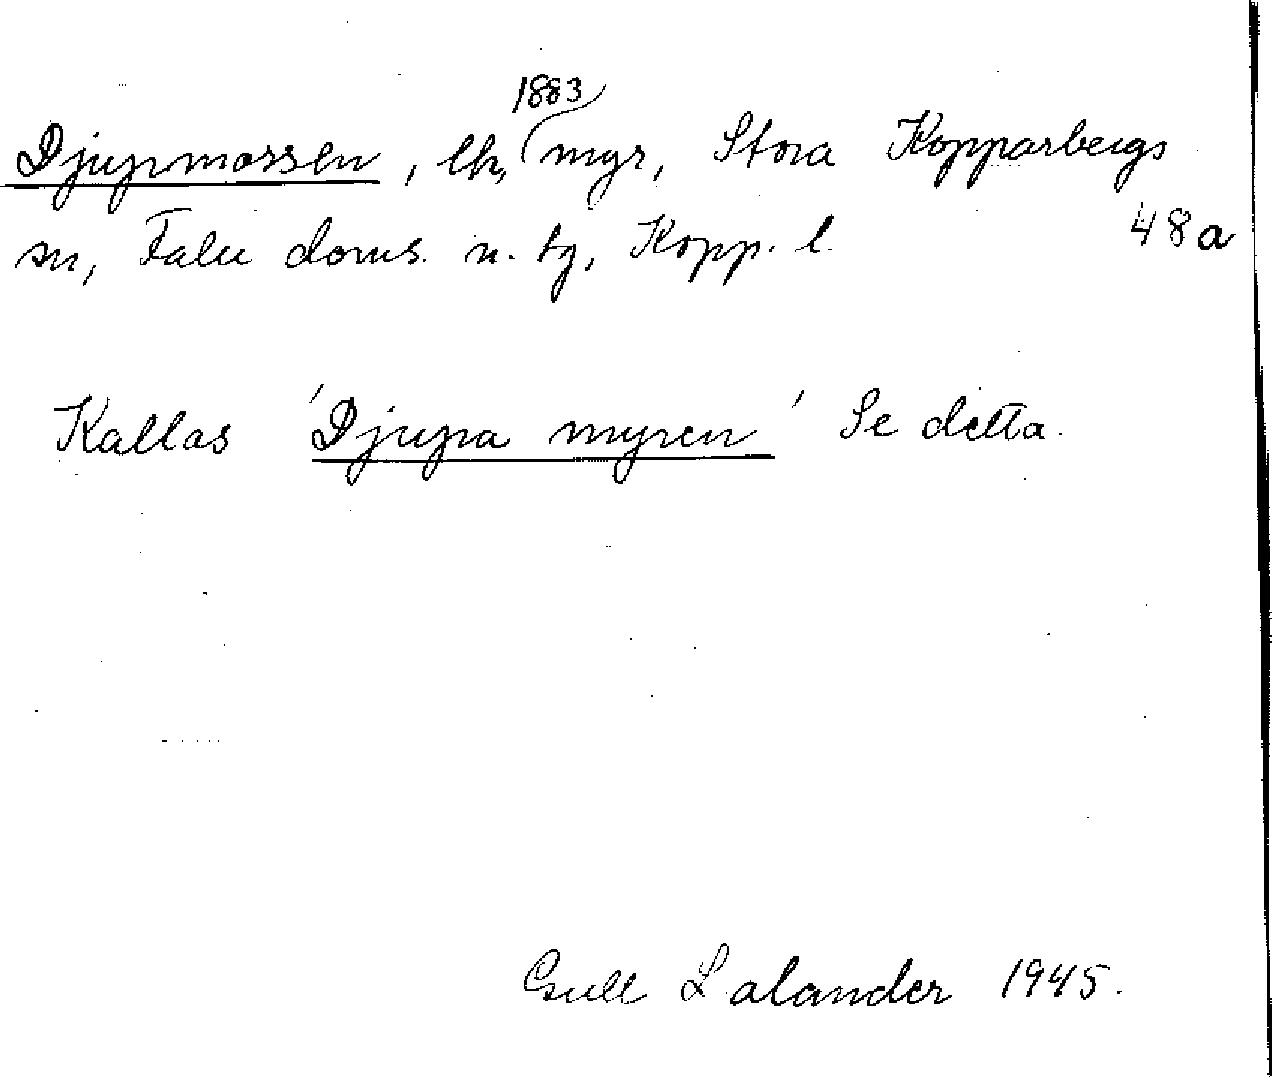 1883
Djupmossen, ek, myr, Stora Kopparbergs
sn, Falu doms. n. tg, Kopp. l.
48a
Kallas 'Djupa myren' Se detta.
Gull Lalander 1945.